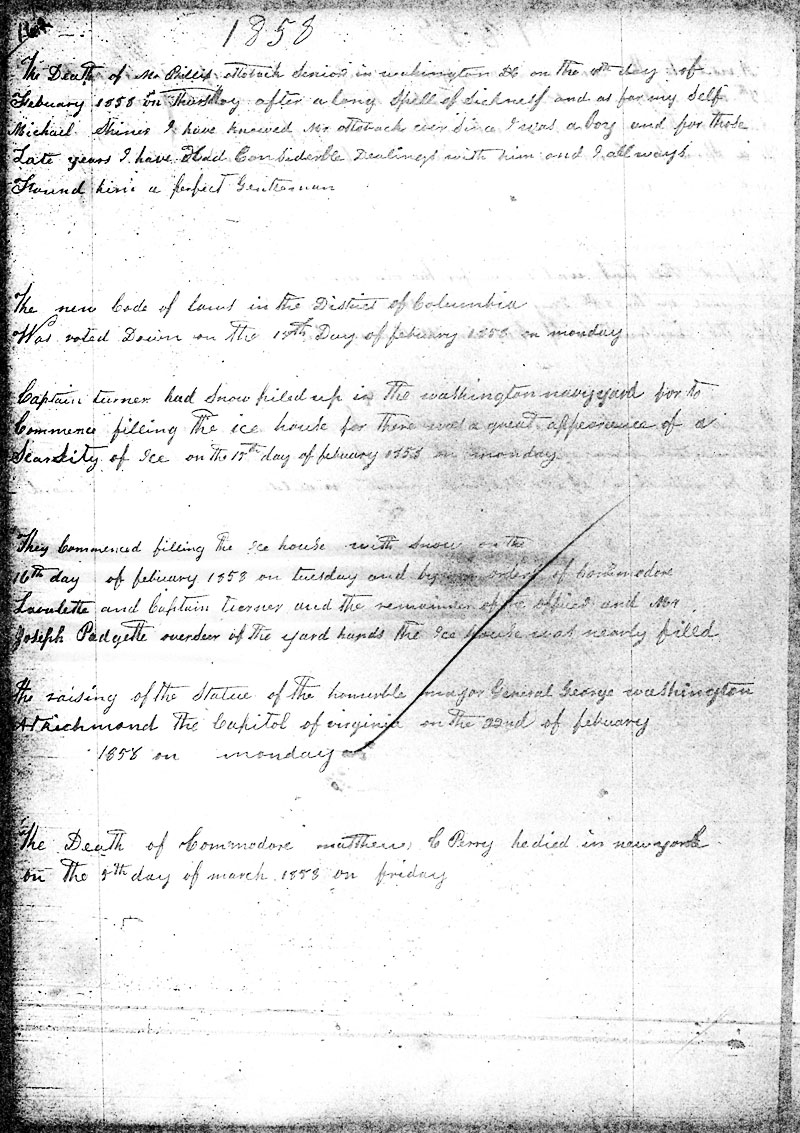 164
1858
The Death of Mr Pillip ottoback Senior in washington DC on the day of
February 1858 on Thursday after a long Spell of Sickness and as for my Self
Michael Shiner I have knowed Mr ottoback ever Since I was a boy and for those
Late years I have Had Considerble Dealings with him and I allways
Found him a perfect Gentleman
The new Code of laws in the District of Columbia
Was voted Down on the 15th Day of febuary 1858 on monday
Captain turner had Snow piled up in the washington navy yard for to
Commence filling the ice house for there was a great appearence of a
Scarsity of Ice on the 15th day of febuary 1858 on monday
They Commenced filling the Ice house with Snow on the
16th day of febuary 1858 on tuesday and by orders of Commodore
Lavalette and Captain turner and the remainder of officers and Mr
Joseph Padgette overseer of the yard hands the Ice House was nearly filld
The raising of the Statue of the honurble major General George washington
At richmond the Capitol of virginia on the 22nd of febuary
1858 on monday
The Death of Commodore matthew C Perry he died in new york
on the 5th day of march 1858 on friday